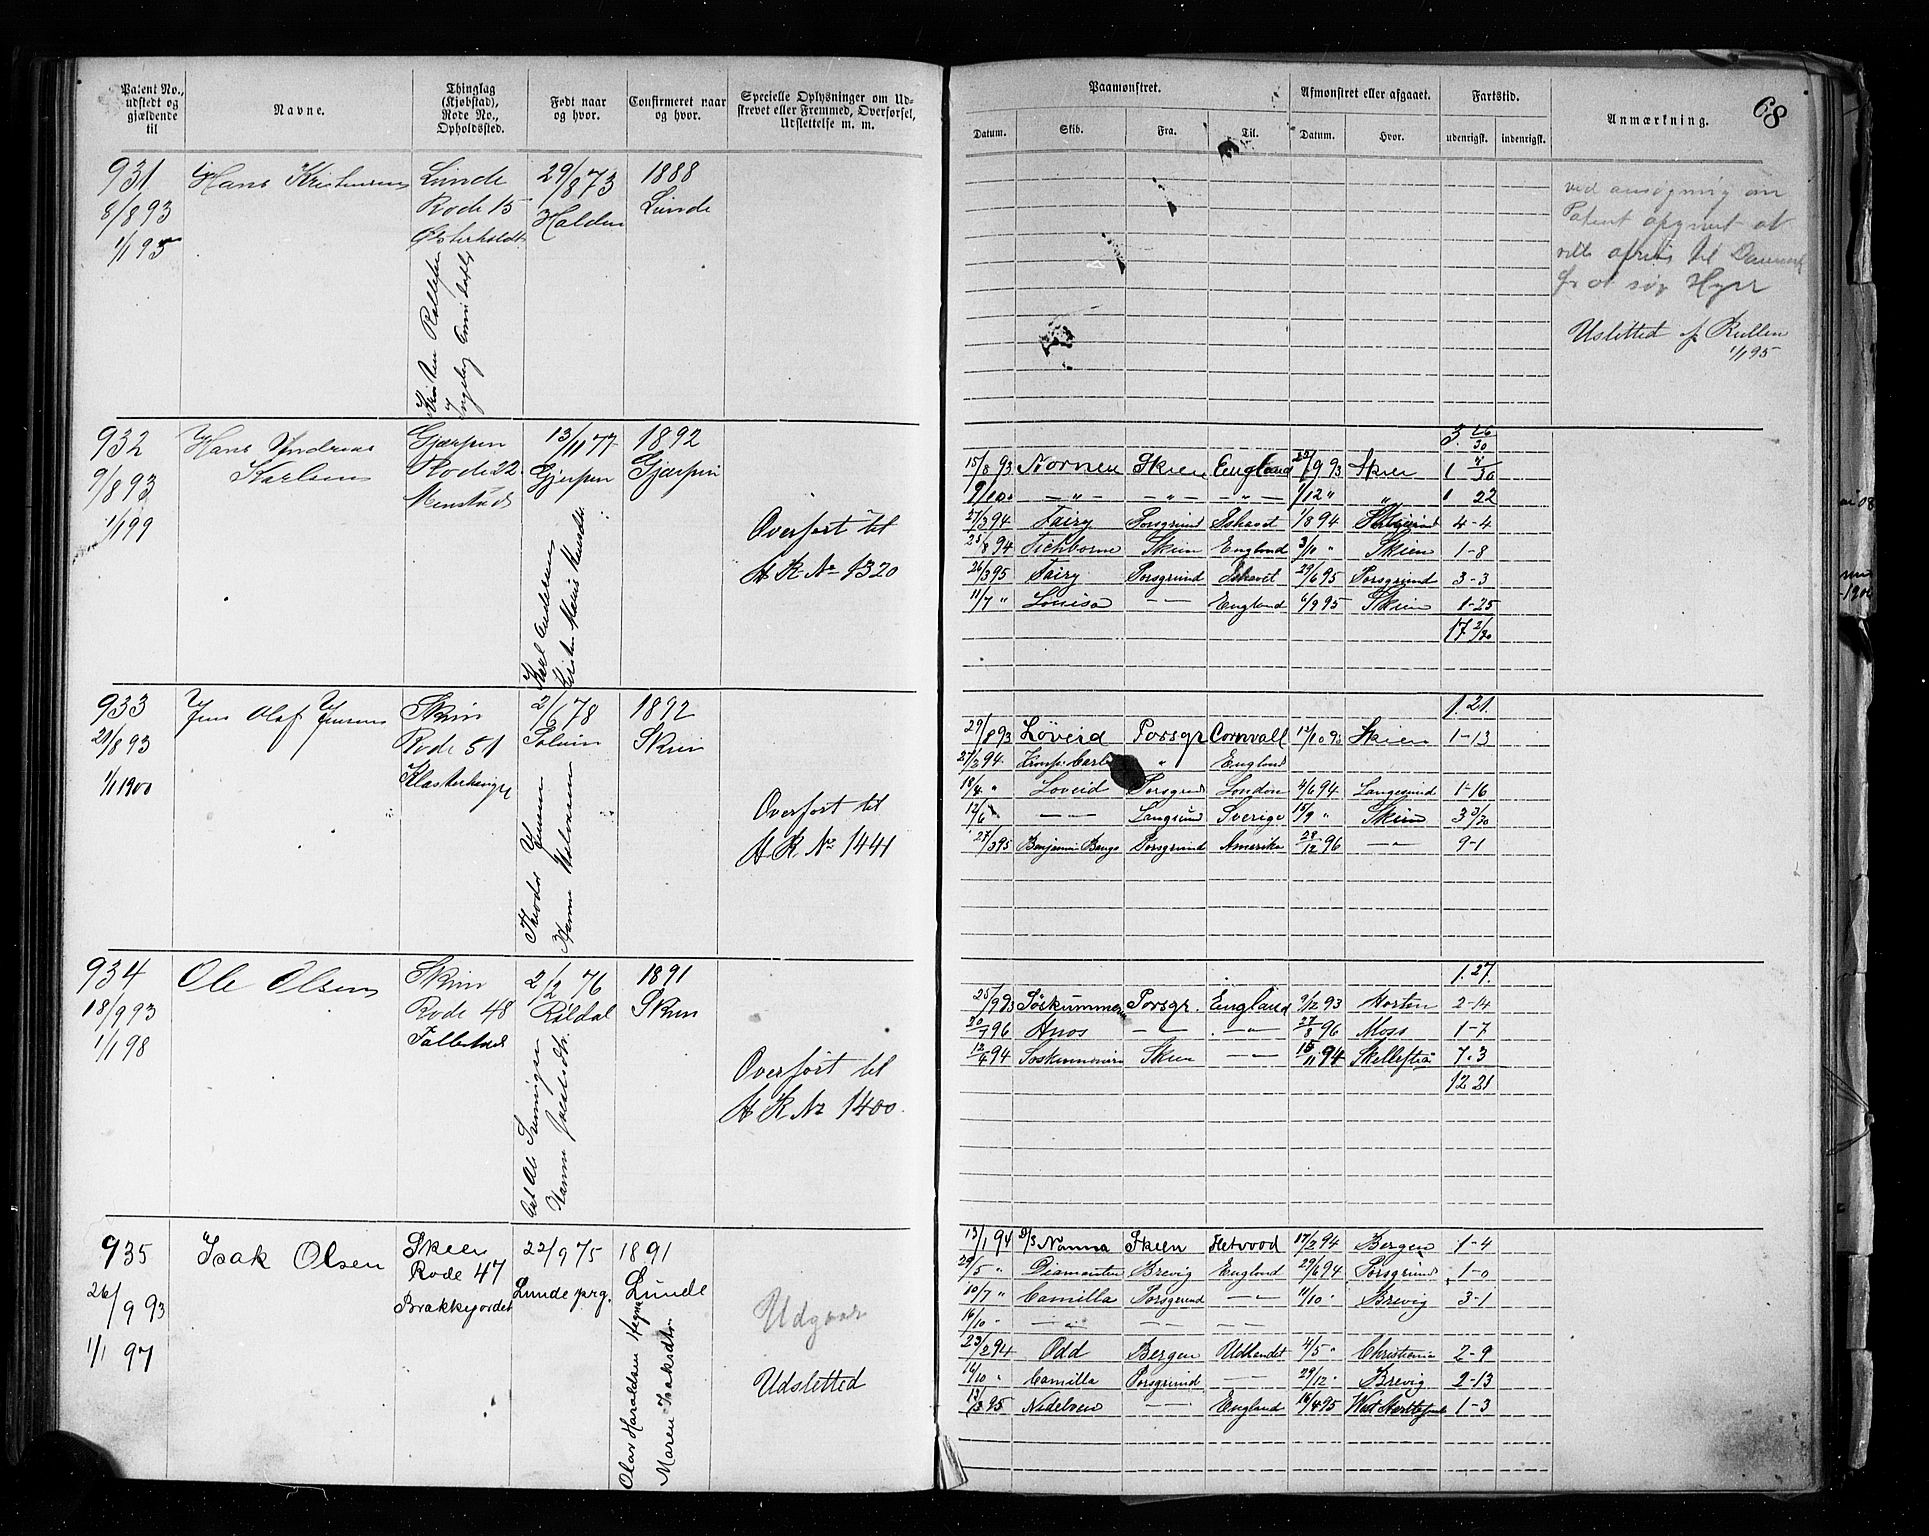 68
Patent No., udstedt og gjældende til
Navne.
Thinglag (Kjøbstad), Rode No., Opholdssted.
Født naar og hvor.
Confirmeret naar og hvor.
Specielle Oplysninger om Udskrevet eller Fremmed, Overførsel, Udslettelse m. m.
Paamønstret.
Afmønstret eller afgaaet.
Fartstid.
Anmærkning.
Datum. Skib. Fra. Til. Datum. Hvor. udenrigsk. indenrigsk.
931 Hans Kristensen Lunde 29/8 73 1888
8/8 93 Rode 15 Holden Lunde
1/1 95 Østerholdt
Kristen
Ingeborg
ved ansøgning om
Patent opgivet at
ville afreise til Danmark
for at søge Hyre
Usletted af Rullen
1/1 95
932 Hans Andreas Gjerpen 13/11 77 1892
9/8 93 Karlsen Rode 22 Gjerpen Gjerpen
1/1 99 Menstad
Karl Andersen
Overført til
H R No 1320
3 26/30
15/8 93 Nornen Skien England 22/9 93 Skien 1 7/30
9/10 " — " — — " — — " — 1/12 " " 1 22
27/3 94 Fairy Porsgrund Ishavet 1/8 94 4-4
25/8 94 Tichborne Skien England 3/10 " Skien 1-8
26/3 95 Fairy Porsgrund Ishavet 29/6 95 Porsgrund 3-3
11/7 " Louise — — England 6/9 95 Skien 1-25
17 2/30
933 Jens Olaf Jensen Skien 2/6 78 1892
21/8 93 Rode 51 Solum Skien
1/1 1900 Klosterhaugen
Theodor Jensen
Hanne
Overført til
H R No 1441
1. 21.
29/8 93 Løveid Porsgr Cornvall 12/10 93 Skien 1-13
27/2 94 " England
18/4 " Loveid Porsgrund London 4/6 94 Langesund 1-16
12/6 " — — Langsund Sverige 15/9 " Skien 3 3/30
27/3 95 Benjamin Bangs Porsgrund Amerika 28/12 96 — " — 9-1
934 Ole Olsen Skien 2/2 76 1891
18/9 93 Rode 48 Røldal Skien
1/1 98
Overført til
H R No 1400
1. 27.
25/9 93 Porsgr. England 9/12 93 Horten 2-14
30/7 96 — — — " — 27/8 96 Moss 1-7
12/4 94 Skien — — 15/11 94 Skellefteå 7-3
12 21
935 Isak Olsen Skien 22/9 75 1891
26/9 93 Rode 47 Lunde prg. Lunde
1/1 97 Brækkejordet
Olav Haraldsen Hegna
Maren Isaksdtr
Udgaar
Udsletted
13/1 94 D/S Nanna Skien Fletvood 17/2 94 Bergen 1-4
29/5 " Diamanten Brevig England 29/6 94 Porsgrund 1-0
10/7 " Camilla Porsgrund — — 11/10 " Brevig 3-1
16/10 " — " — — — — —
23/2 94 Odd Bergen Udlandet 4/5 " Christiania 2-9
16/10 " Camilla Porsgrund — — 29/12 " Brevig 2-13
13/3 95 Nidelven — — England 16/4 95 West Hartlepool 1-3